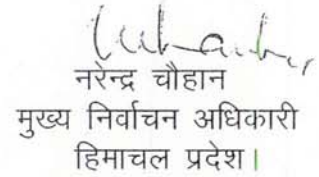 नरेन्द्र चौहान
मुख्य निर्वाचन अधिकारी
हिमाचल प्रदेश।